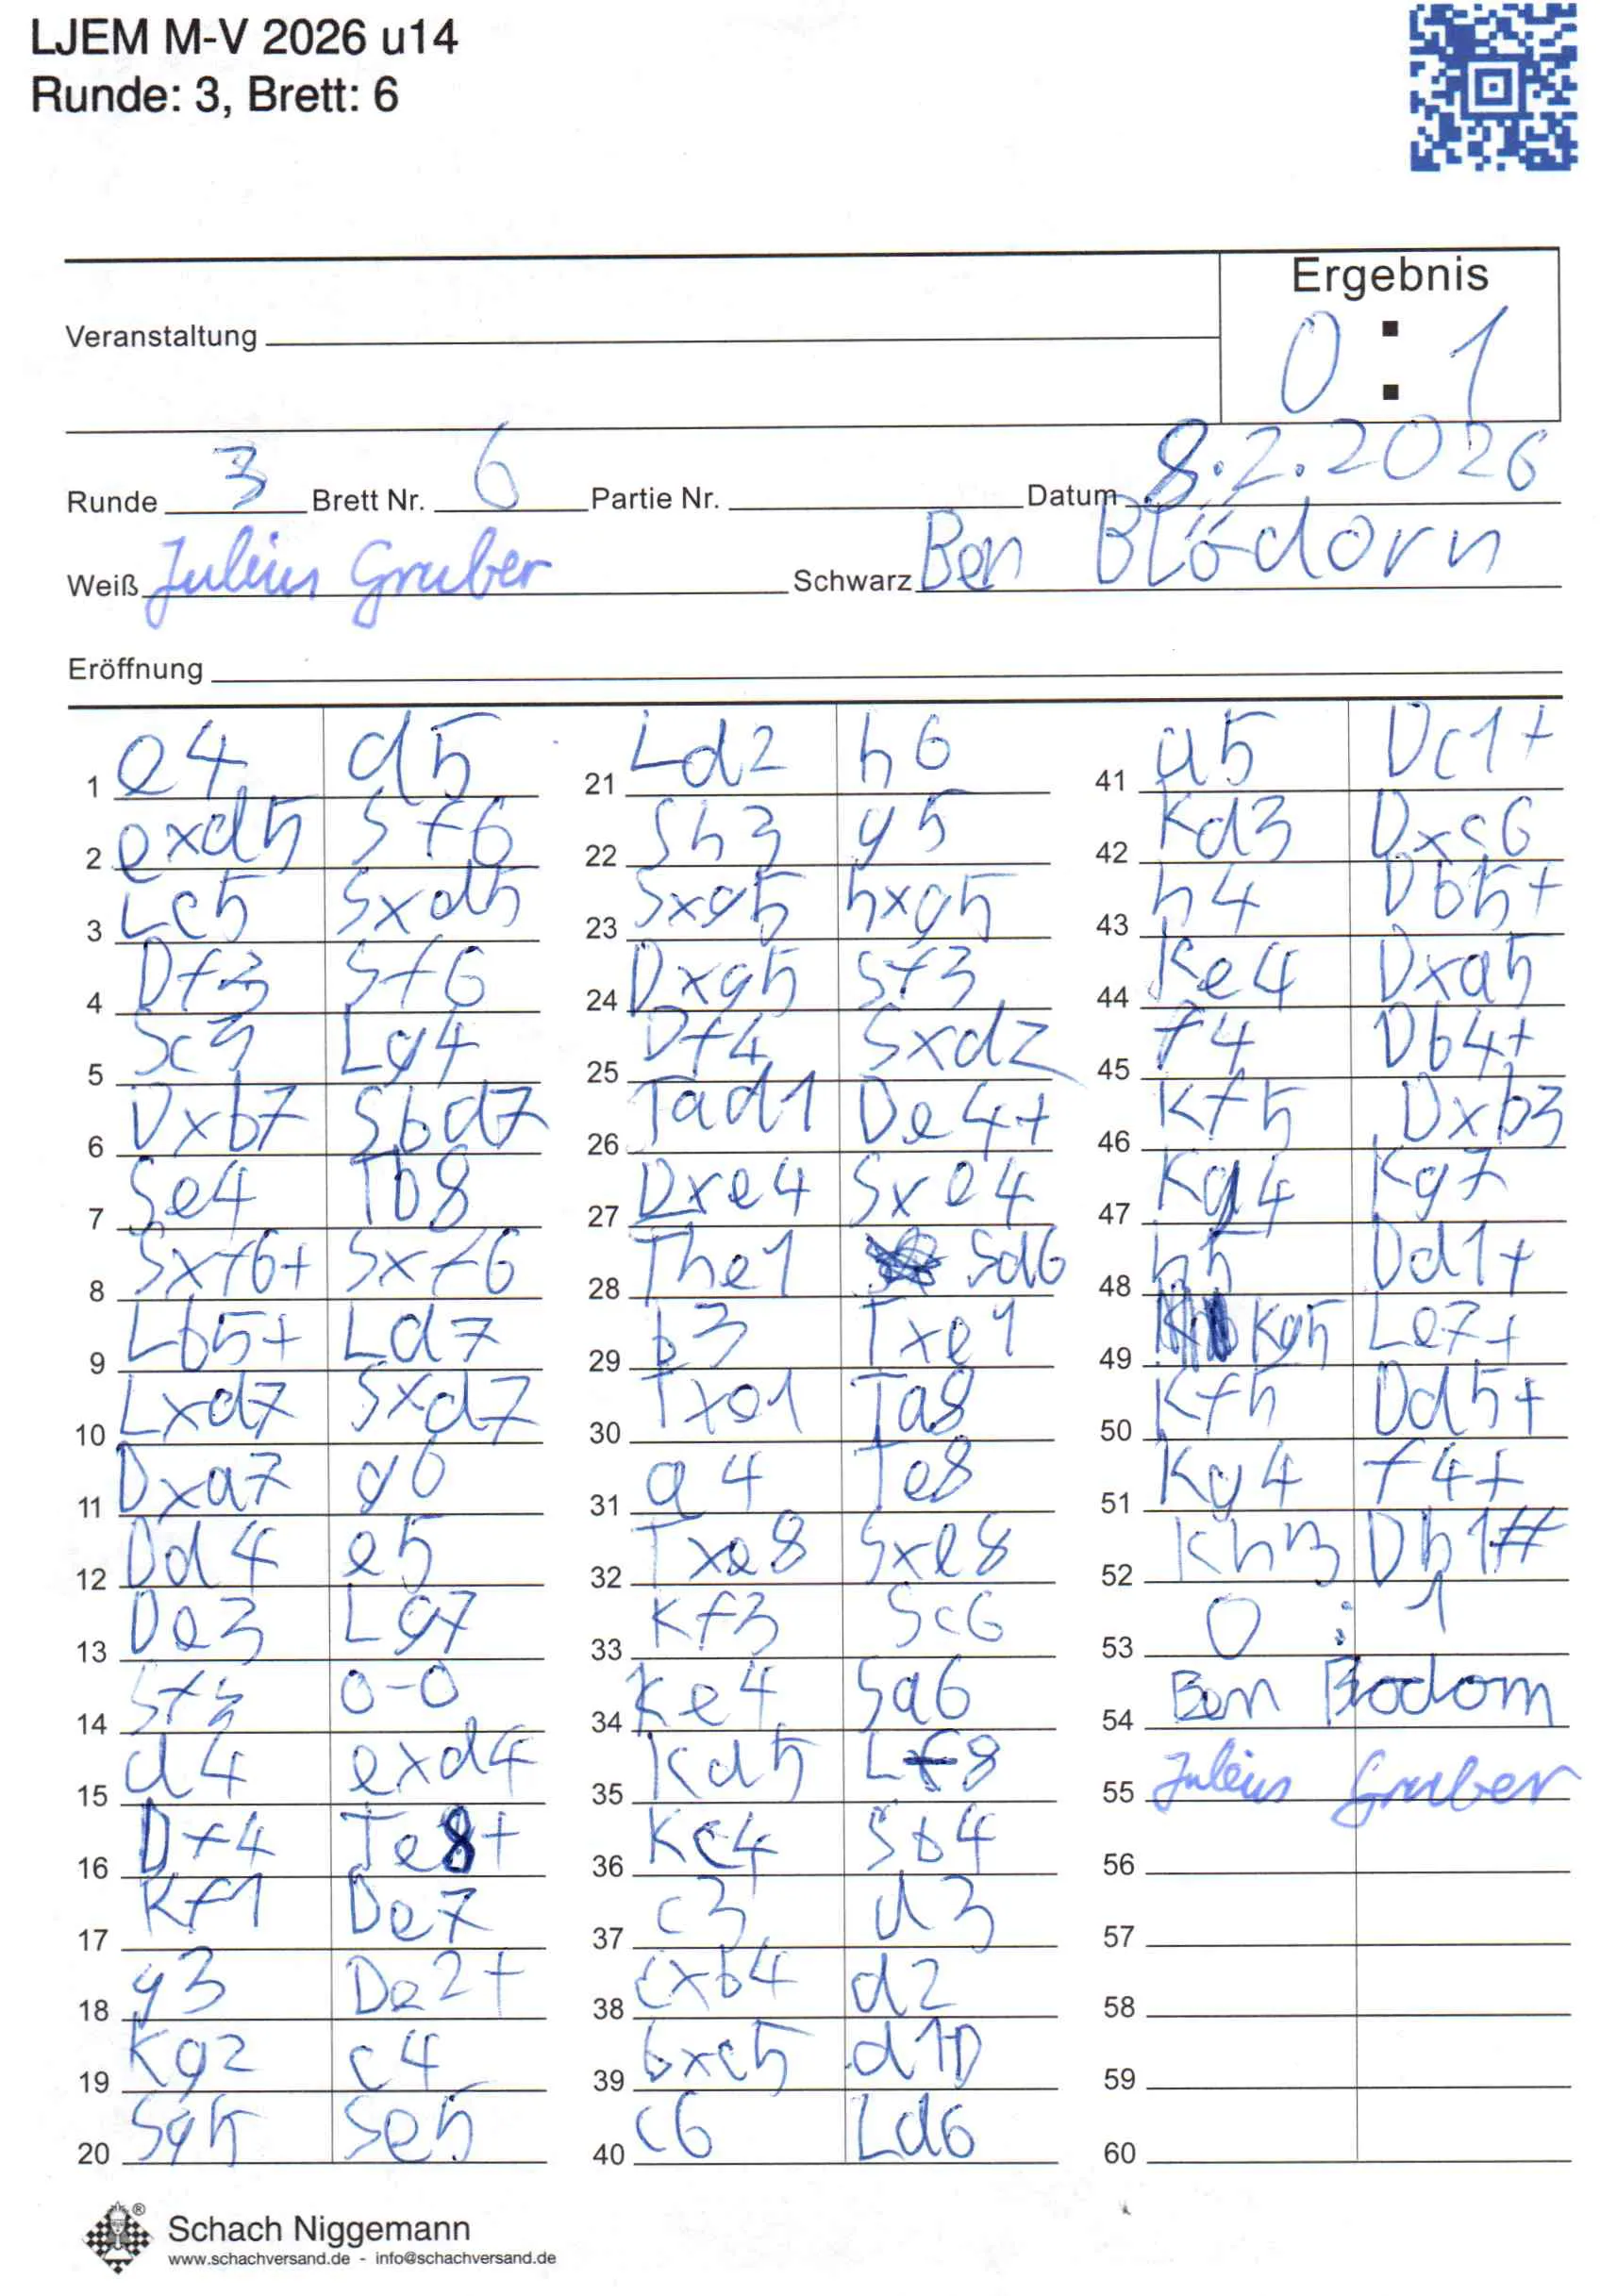 LJEM M-V 2026 u14
Runde: 3, Brett: 6
Ergebnis
0 : 1
Veranstaltung
Runde 3 Brett Nr. 6 Partie Nr. Datum 8.2.2026
Weiß Julius Gruber Schwarz Ben Blödorn
Eröffnung
1 e4 d5
2 exd5 Sf6
3 Lc5 Sxd5
4 Df3 Sf6
5 Sc3 Lg4
6 Dxb7 Sbd7
7 Se4 Tb8
8 Sxf6+ Sxf6
9 Lb5+ Ld7
10 Lxd7 Sxd7
11 Dxa7 g6
12 Dd4 e5
13 De3 Lg7
14 Sf3 0-0
15 d4 exd4
16 Df4 Te8+
17 Kf1 De7
18 g3 De2+
19 Kg2 c4
20 Sg5 Se5
21 Ld2 h6
22 Sh3 g5
23 Sxg5 hxg5
24 Dxg5 Sf3
25 Df4 Sxd2
26 Tad1 De4+
27 Dxe4 Sxe4
28 The1 Sd6
29 b3 Txe1
30 Txe1 Ta8
31 a4 Te8
32 Txe8 Sxe8
33 Kf3 Sc6
34 Ke4 Sa6
35 Kd5 Lf8
36 Kc4 Sb4
37 c3 d3
38 cxb4 d2
39 bxc5 d1D
40 c6 Ld6
41 a5 Dc1+
42 Kd3 Dxc6
43 h4 Db5+
44 Ke4 Dxa5
45 f4 Db4+
46 Kf5 Dxb3
47 Kg4 Kg7
48 h5 Dd1+
49 Kg5 Le7+
50 Kf5 Dd5+
51 Kg4 f4+
52 Kh3 Dh1#
53 0 : 1
54 Ben Blodorn
55 Julius Gruber
56
57
58
59
60
®
Schach Niggemann
www.schachversand.de - info@schachversand.de